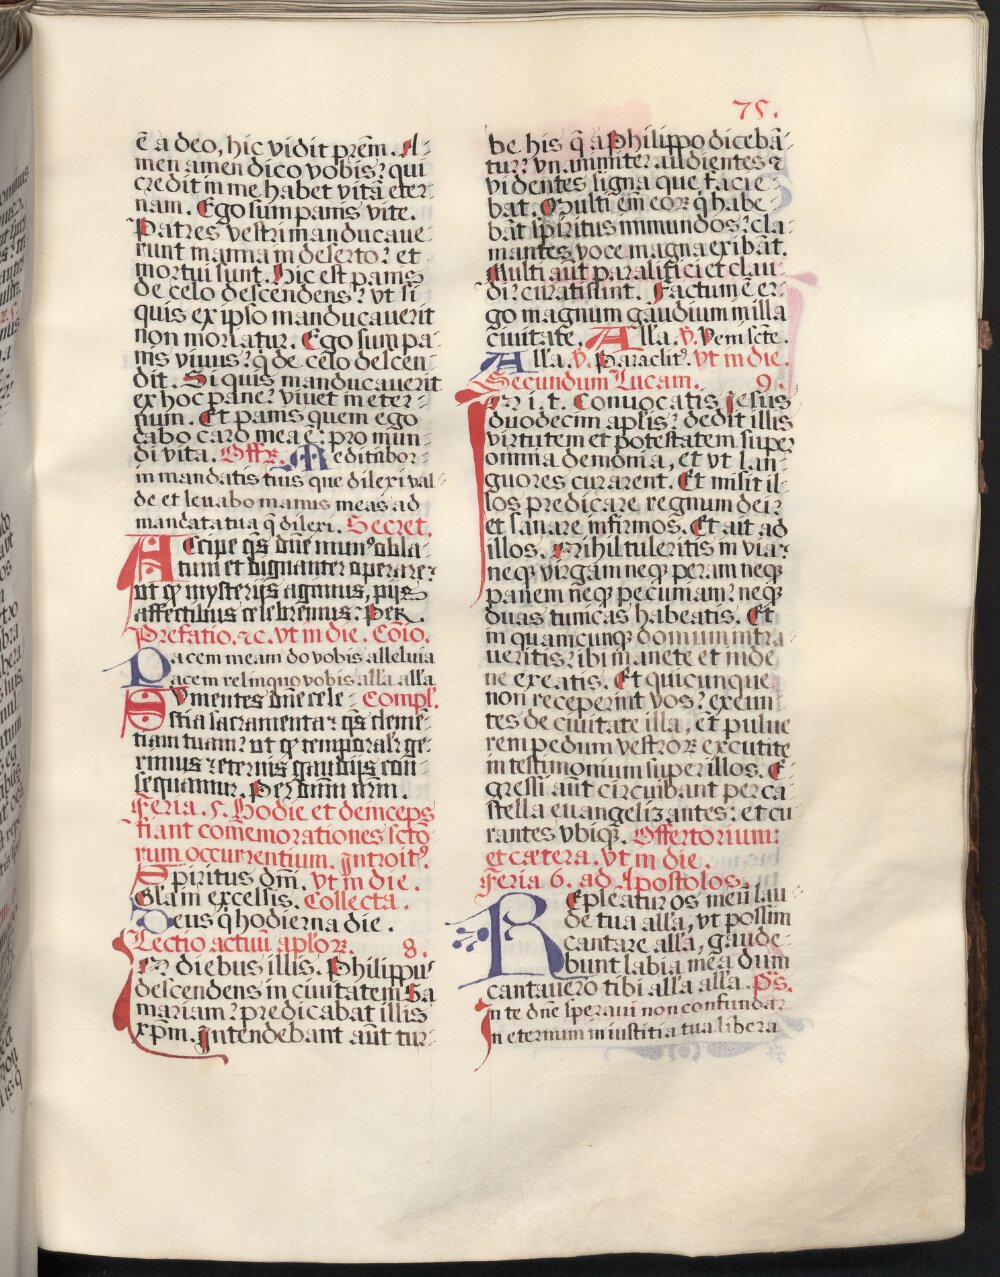 75.
ē a deo, hic vidit prēm. A-
men amen dico vobis? qui
credit in me habet vitā eter-
nam. Ego sum panis vite.
Patres vestri manducaue
runt manna in deserto? et
mortui sunt. Hic est panis
de celo descendens? vt si
quis ex ipso manducauerit
non moriatur. Ego sum pa-
nis viuus? q̄ de celo descen
dit. Si quis manducauerit
ex hoc pane? viuet in eter-
num. Et panis quem ego
dabo caro mea ē: pro mun
di vita. Offꝛ. Meditabor-
in mandatis tuis que dilexi val-
de et leuabo manus meas ad
mandata tua q̄ dilexi. Secret.
Accipe q̄s dn̄e mun᾽ obla-
tum et dignanter operare?
ut q̱ mysterijs agimus, pijs
affectibus celebremus? Per.
Prefatio. ⁊c. vt in die. Cōio.
Pacem meam do vobis alleluia
pacem relinquo vobis alľa alľa
Sumentes dn̄e cele- Compľ.
stia sacramenta? q̄s cleme-
tiam tuam? ut q̱ temporaľr ge-
rimus eternis gaudijs con-
sequamur. Per dn̄m nr̄m.
Feria. 5. Hodie et deinceps
fiant comemorationes sctō
rum occurrentium. Introit᾽.
Spiritus dn̄i. vt in die.
Gľa in excelsis. Collecta.
Deus q̄ hodierna die.
Lectio actuū apľoꝝ. 8.
In diebus illis. Philippus
descendens in ciuitatem Sa
mariam? predicabat illis
xp̄m. Intendebant aūt tur-
be his q̄ a Philippo dicebā-
tur? vnanimiter audientes ⁊
videntes signa que facie-
bat. Multi em̄ eoꝝ q̄ habe
bāt spiritus inmundos? cla-
mantes voce magna exibāt.
Multi aūt paralitici et clau-
di? curati sunt. Factum ē er-
go magnum gaudium in illa
ciuitate. Alľa. ℣. Veni scte.
Alľa. ℣. Paraclit᾽. vt in die.
Secundum Lucam. 9.
In i. t. Conuocatis Jesus
duodecim apľis? dedit illis
virtutem et potestatem super
omnia demonia, et vt lan-
guores curarent. Et misit il-
los predicare regnum dei?
et sanare infirmos. Et ait ad
illos. Nihil tuleritis in via?
neqꝫ virgam neqꝫ peram neqꝫ
panem neqꝫ pecumam? neqꝫ
duas tunicas habeatis. Et
in quamcunqꝫ domum intra
ueritis? ibi manete et inde
ne exeatis. Et quicunque
non receperint vos? exeun-
tes de ciuitate illa, et pulue
rem pedum vestroꝝ excutite
in testimonium super illos. E-
gressi aūt circuibant per ca-
stella euangelizantes: et cu
rantes vbiqꝫ. Offertorium:
et cætera. vt in die.
Feria 6. ad Apostolos.
Repleatur os meū lau-
de tua alľa, vt possim
cantare alľa, gaude-
bunt labia mea dum
cantauero tibi alľa alľa. Ps̄.
In te dn̄e speraui non confundar
in eternum in iustitia tua libera